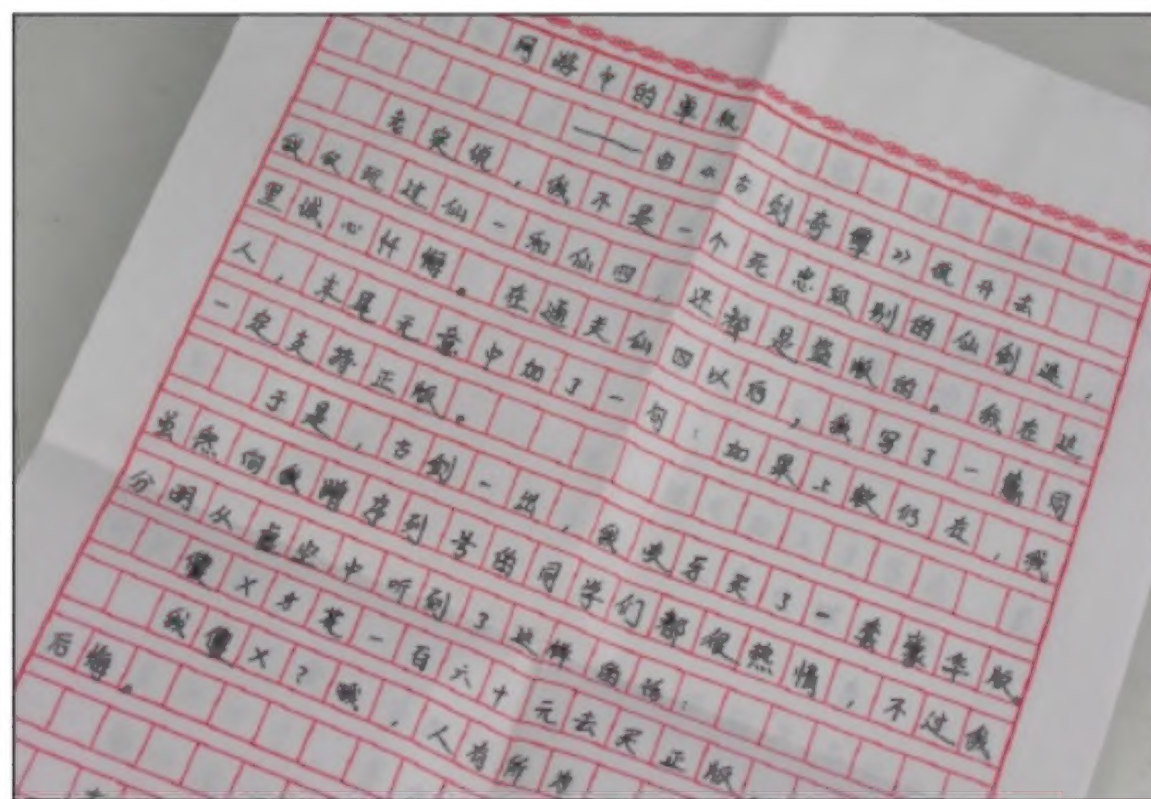 网游中的单机
——由《古剑奇谭》开去
老实说，我不是一个死忠级别的仙剑迷，
我仅玩过仙一和仙四，还都是盗版的。我在这
里诚心忏悔。在通关仙四以后，我写了一篇同
人，末尾无意中加了一句：如果上软仍在，我
一定支持正版。
于是，古剑一出，我买了一套豪华版。
虽然向我赠序列号的同学们都很热情，不过我
分明从虚空中听到了这样的话：
傻X才花一百六十元去买正版
我傻X？哦，人有所为
后悔。